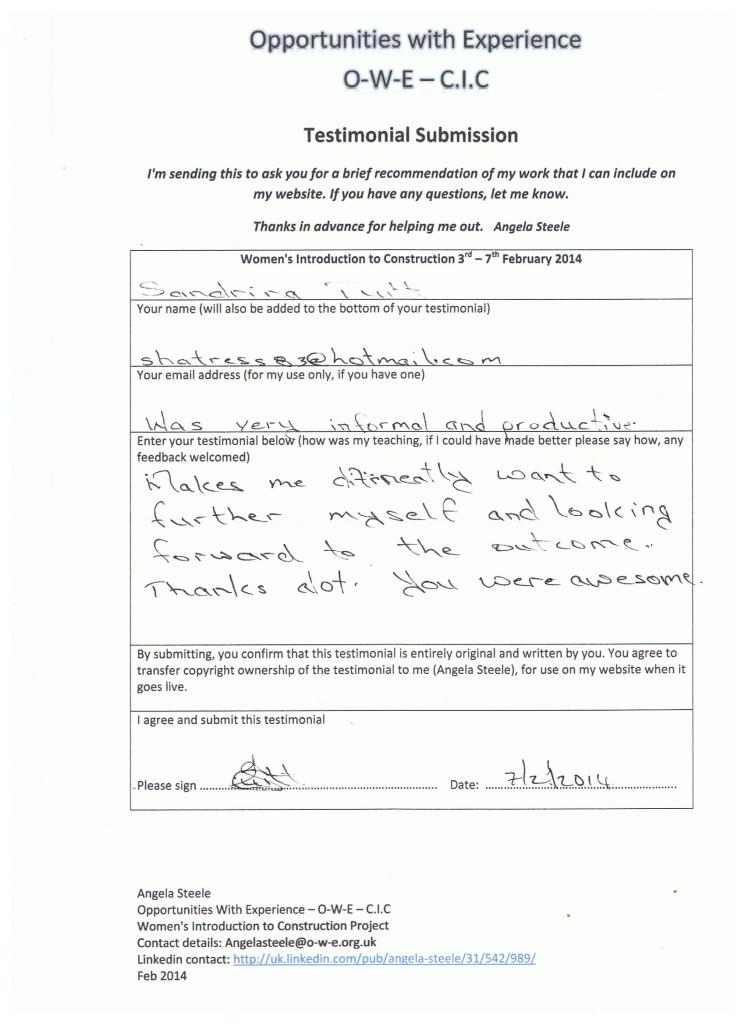 Opportunities with Experience
O-W-E – C.I.C
Testimonial Submission
I'm sending this to ask you for a brief recommendation of my work that I can include on
my website. If you have any questions, let me know.
Thanks in advance for helping me out. Angela Steele
Women's Introduction to Construction 3rd – 7th February 2014
Your name (will also be added to the bottom of your testimonial)
@hotmail.com
Your email address (for my use only, if you have one)
Was very informal and productive.
Enter your testimonial below (how was my teaching, if I could have made better please say how, any
feedback welcomed)
Makes me want to
further myself and looking
forward to the outcome..
Thanks alot. You were awesome.
By submitting, you confirm that this testimonial is entirely original and written by you. You agree to
transfer copyright ownership of the testimonial to me (Angela Steele), for use on my website when it
goes live.
I agree and submit this testimonial
Please sign ........ Date: 7/2/2014
Angela Steele
Opportunities With Experience – O-W-E – C.I.C
Women's Introduction to Construction Project
Contact details: Angelasteele@o-w-e.org.uk
Linkedin contact: http://uk.linkedin.com/pub/angela-steele/31/542/989/
Feb 2014